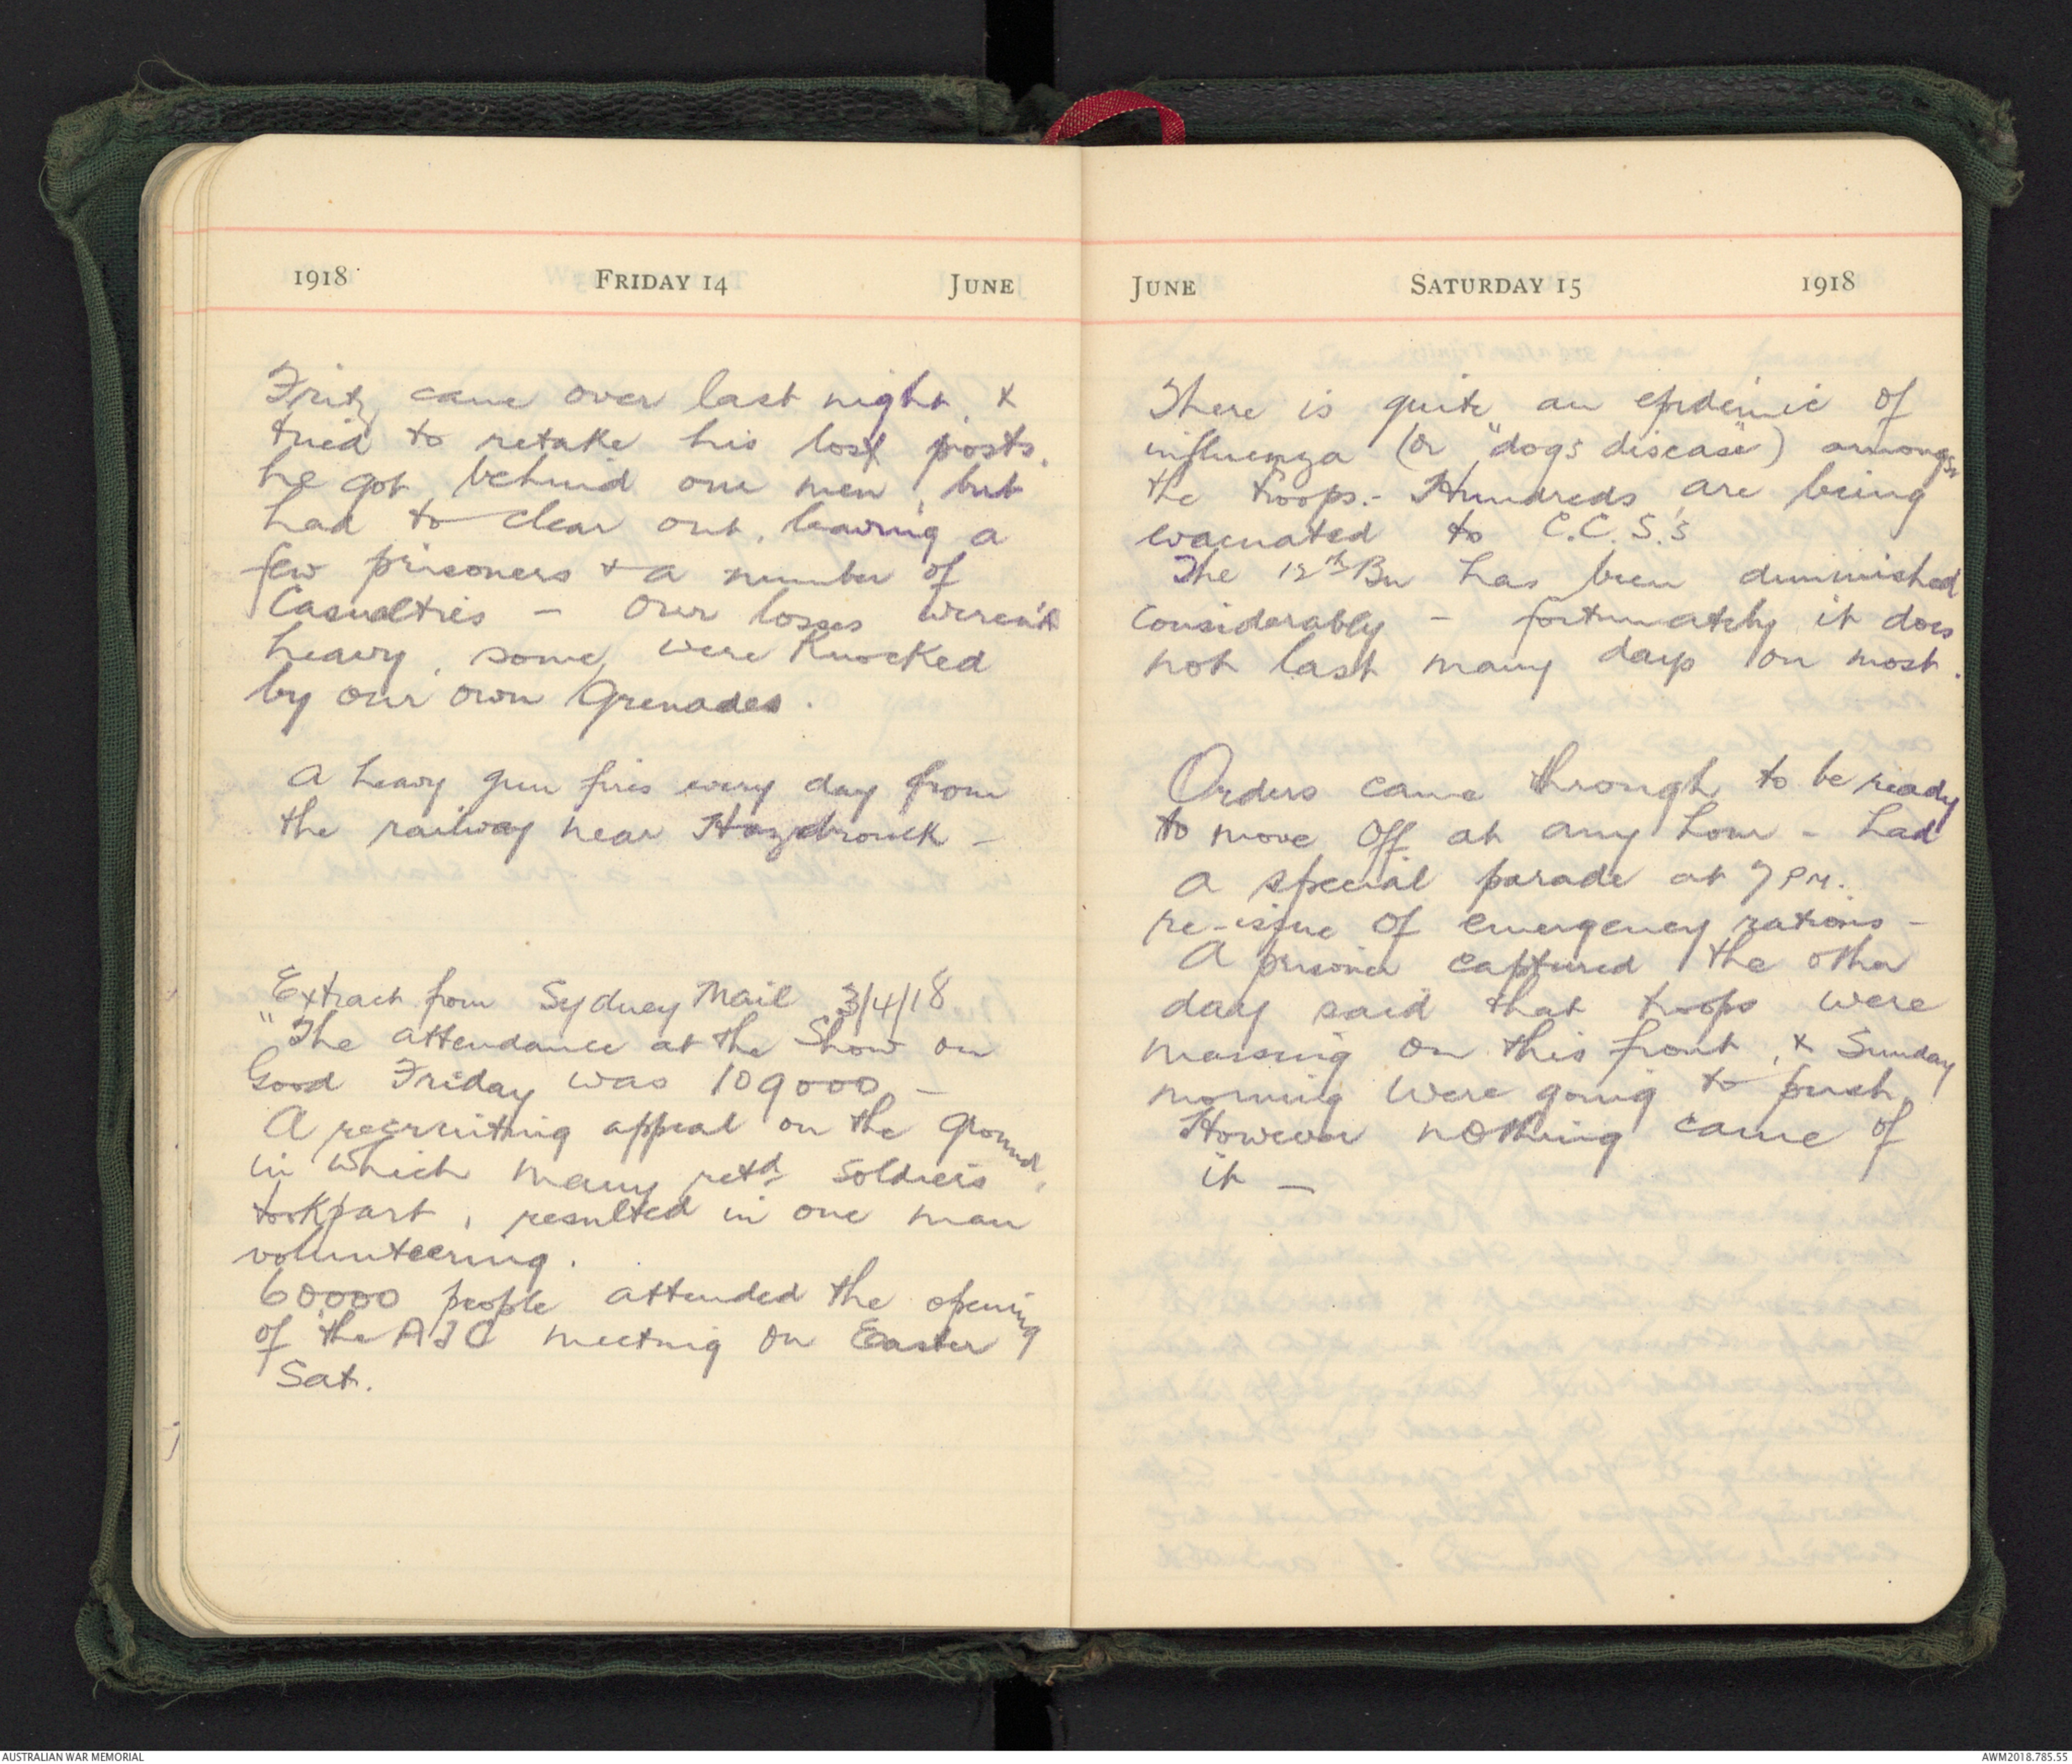 1918 FRIDAY 14 JUNE
Fritz came over last night, &
tried to retake his lost posts.
he got behind our men, but
had to clear out, leaving a
few prisoners & a number of
Casualties - our losses weren't
heavy, some were knocked
by our own Grenades.
A heavy gun fires every day from
the railway near Hazebrouck -
Extract from Sydney Mail 3/4/18
"The attendance at the Show on
Good Friday was 109000 -
A recruiting appeal on the Ground,
in which many retd soldiers
took part, resulted in one man
volunteering.
60000 people attended the opening
of the AJC meeting on Easter
Sat.
JUNE SATURDAY 15 1918
There is quite an epidemic of
influenza (or "dogs disease") amongst
the troops.- Hundreds are being
evacuated to C.C.S.'s
The 12th Bn has been diminished
considerably - fortunately it does
not last many days on most.
Orders came through to be ready
to move off at any hour - had
a special parade at 7 PM.
re-issue of emergency rations -
A prisoner captured the other
day said that troops were
massing on this front, & Sunday
morning were going to push.
However nothing came of
it -
AUSTRALIAN WAR MEMORIAL
AWM2018.785.55